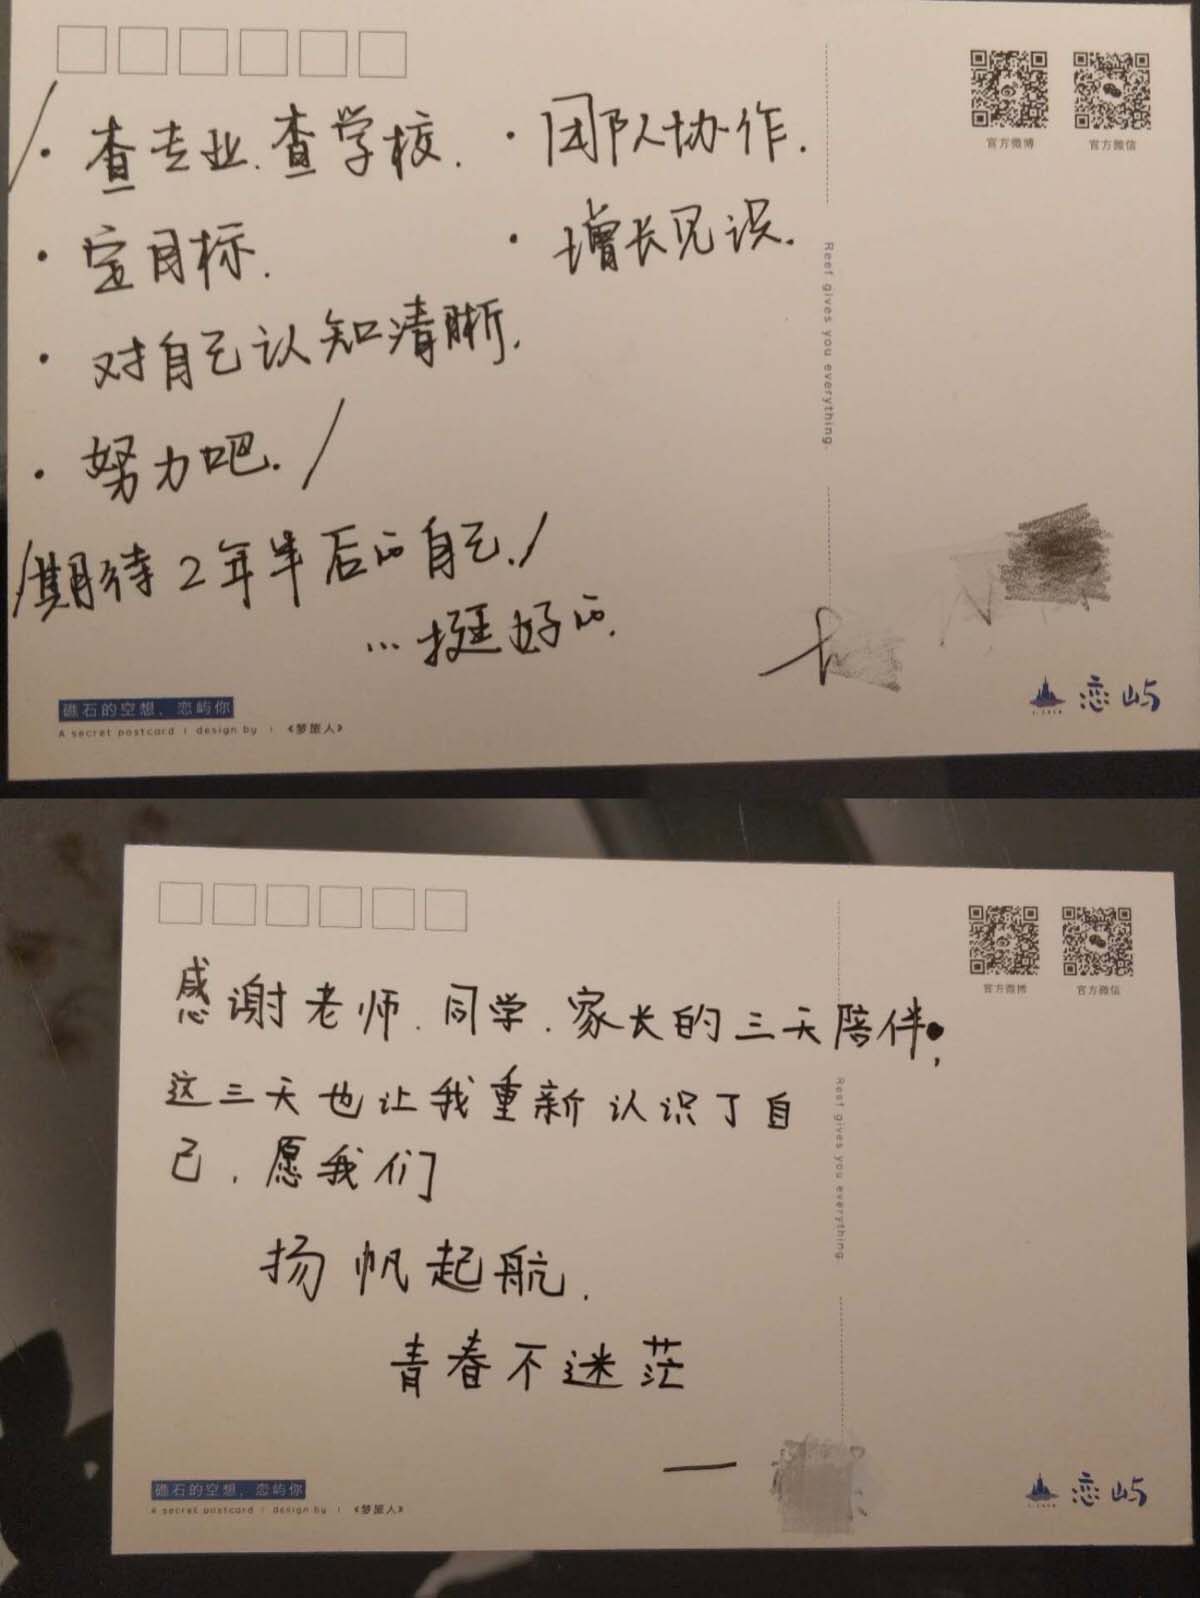 官方微博 官方微信
· 查专业.查学校. · 团队协作.
· 定目标. · 增长见识.
· 对自己认知清晰.
· 努力吧.
期待2年半后的自己.
...挺好的.
Reef gives you everything.
礁石的空想，恋屿你
A secret postcard | design by | 《梦旅人》
恋屿
官方微博 官方微信
感谢老师.同学.家长的三天陪伴,
这三天也让我重新认识了自
己.愿我们
扬帆起航.
青春不迷茫
—
Reef gives you everything.
礁石的空想，恋屿你
A secret postcard | design by | 《梦旅人》
恋屿